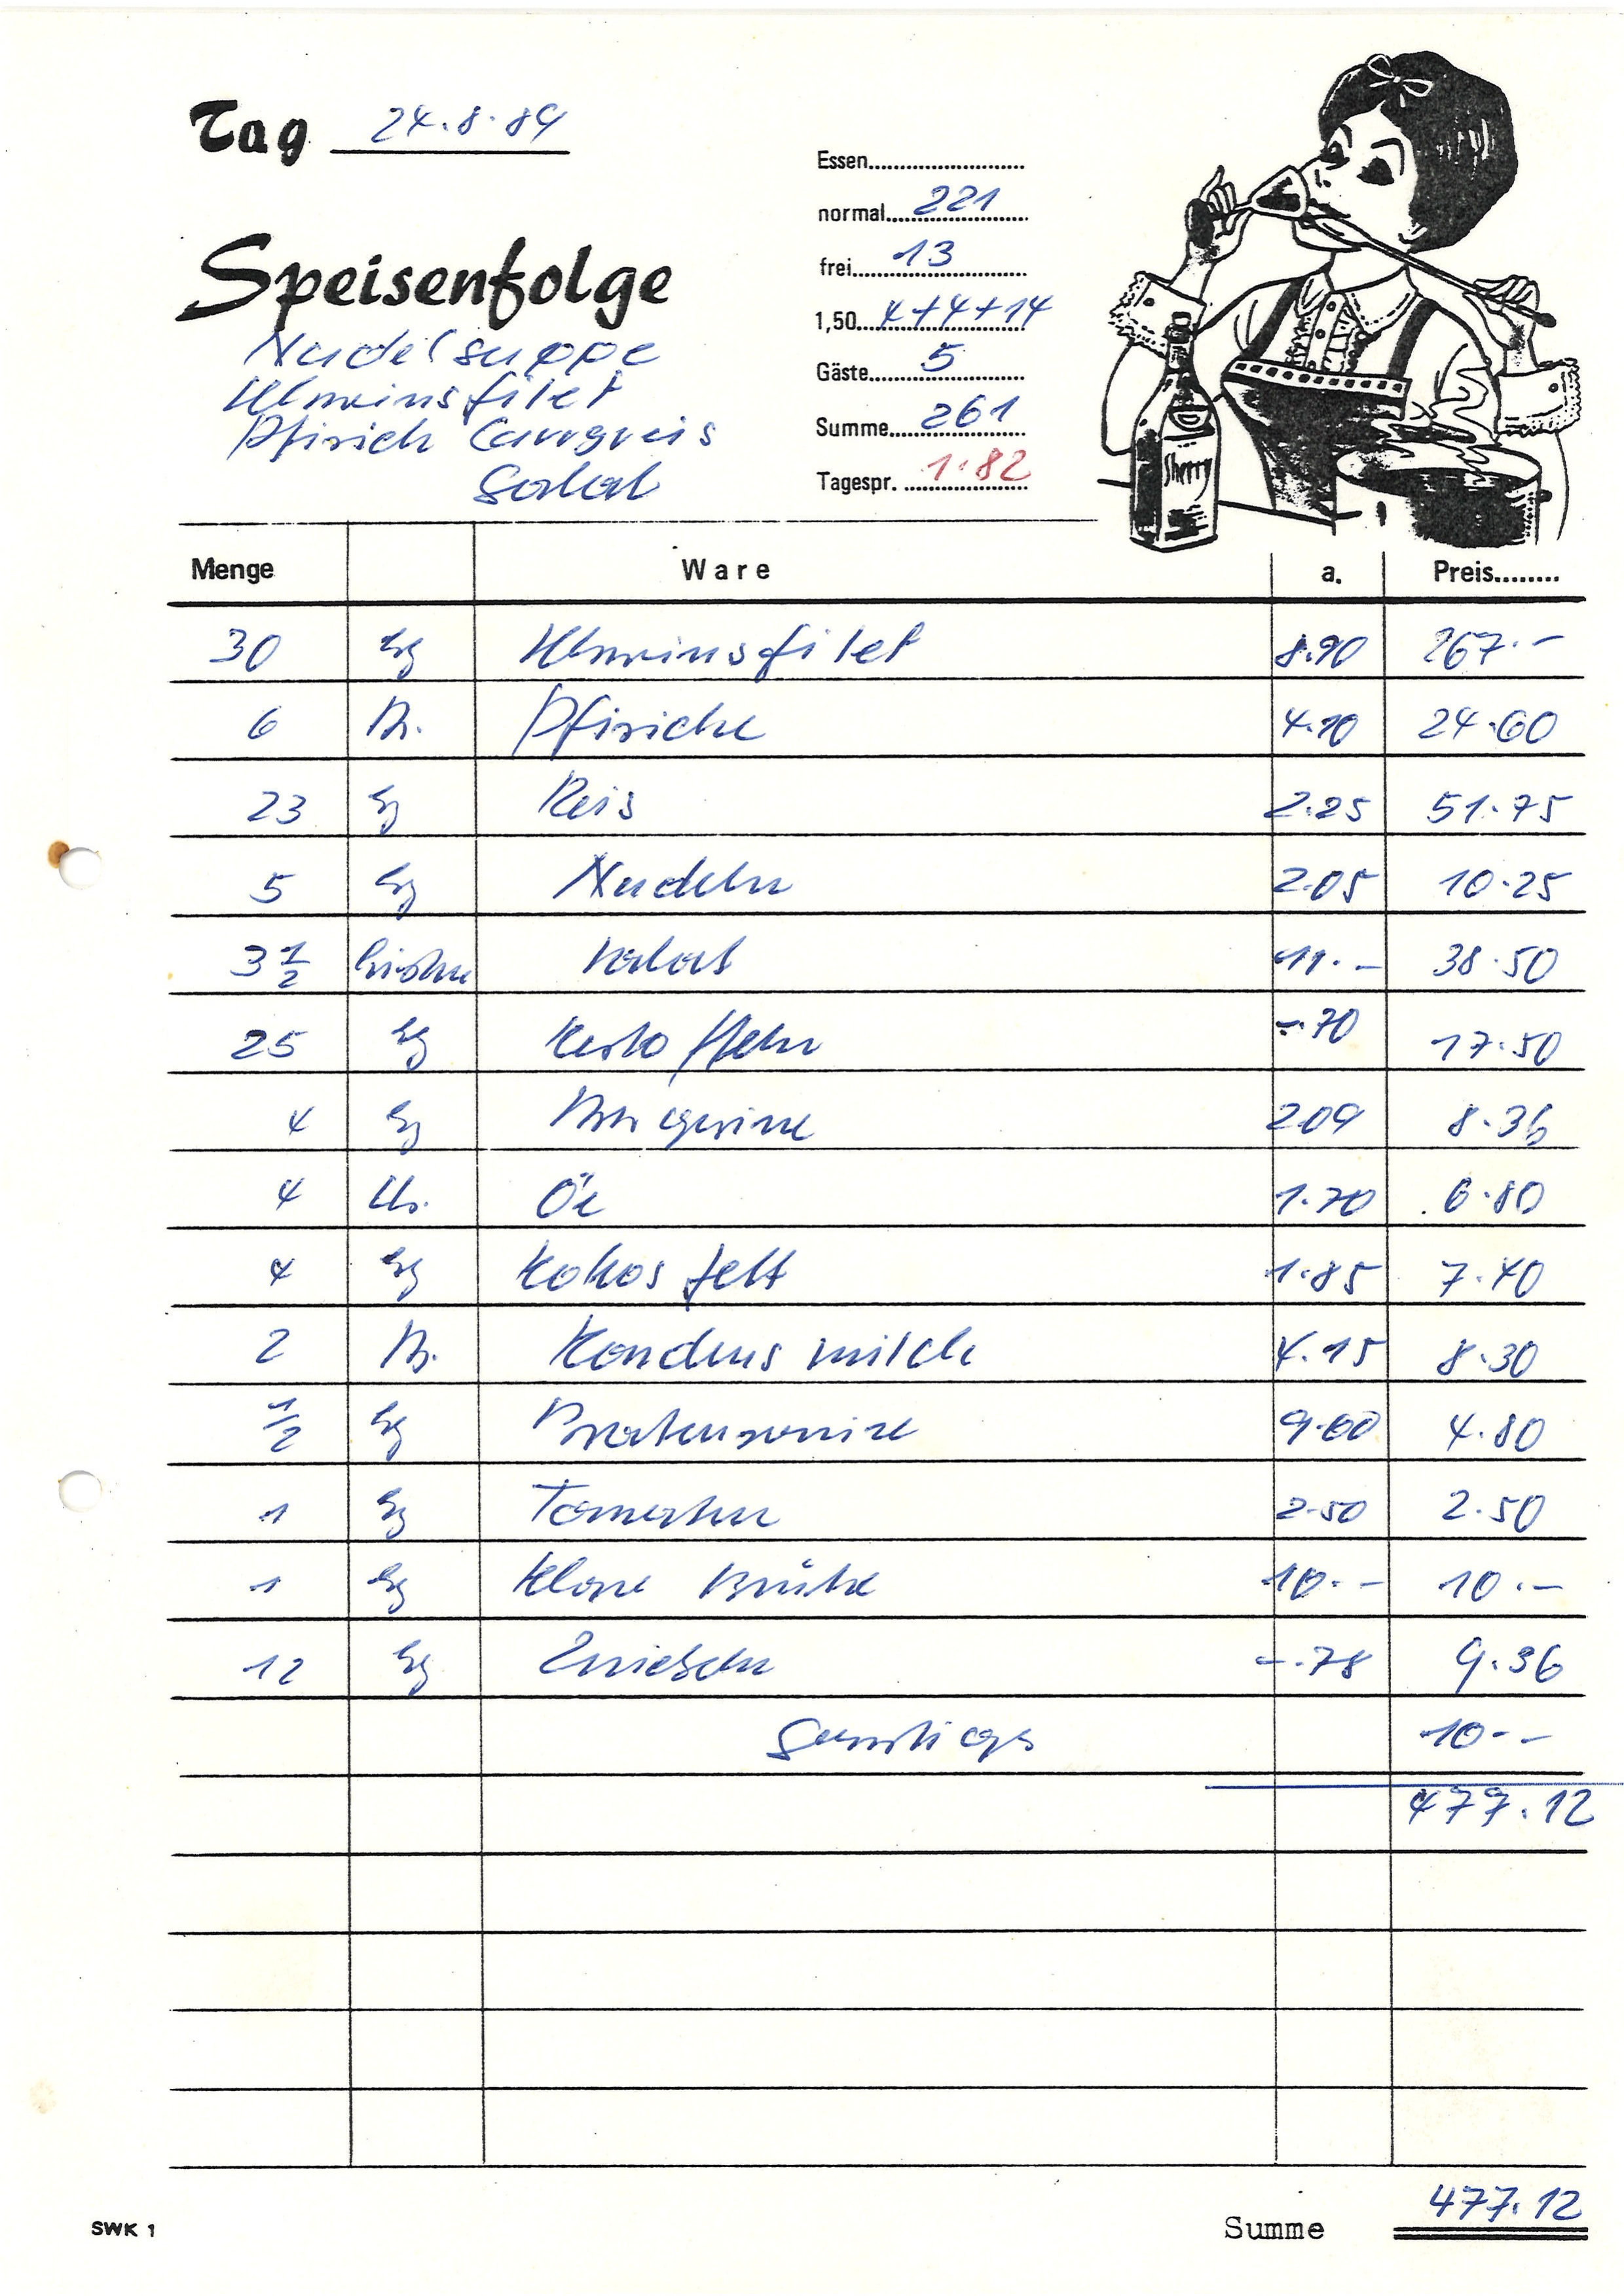 Tag 24.8.89
Essen
normal 221
frei 13
1,50 4+4+14
Gäste 5
Summe 261
Tagespr. 1.82
Speisenfolge
Nudelsuppe
Pfirsich Curryreis
Salat
Sherry
Menge Ware a. Preis
30 kg 8.90 267.-
6 Ds. Pfirsiche 4.10 24.60
23 kg Reis 2.25 51.75
5 kg Nudeln 2.05 10.25
3 1/2 Kisten Salat 11.- 38.50
25 kg Kartoffeln -.70 17.50
4 kg Margarine 2.09 8.36
4 Öl 1.70 6.80
4 kg Kokosfett 1.85 7.40
2 Ds. Kondensmilch 4.15 8.30
1/2 kg 9.60 4.80
1 kg Tomaten 2.50 2.50
1 kg Klare Brühe 10.- 10.-
12 kg Zwiebeln -.78 9.36
Sonstiges 10.-
477.12
SWK 1 Summe 477.12